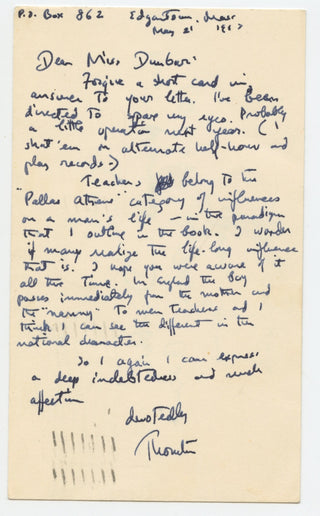 P.O. Box 862 Edgartown, Mass
May 21 1967
Dear Miss Dunbar:
Forgive a short card in
answer to your letter. I've been
directed to spare my eyes. Probably
a little operation next year. (I
shut 'em on alternate half-hour and
play records.)
Teachers belong to the
"Pallas Athene" category of influences
on a man's life — in the paradigm
that I outline in the book. I wonder
if many realize the life-long influence
that is. I hope you were aware of it
all this time. In England the boy
passes immediately from the mother and
the "nanny" to men teachers and I
think I can see the different in the
national character.
So I again I can express
a deep indebtedness and much
affection
devotedly
Thornton